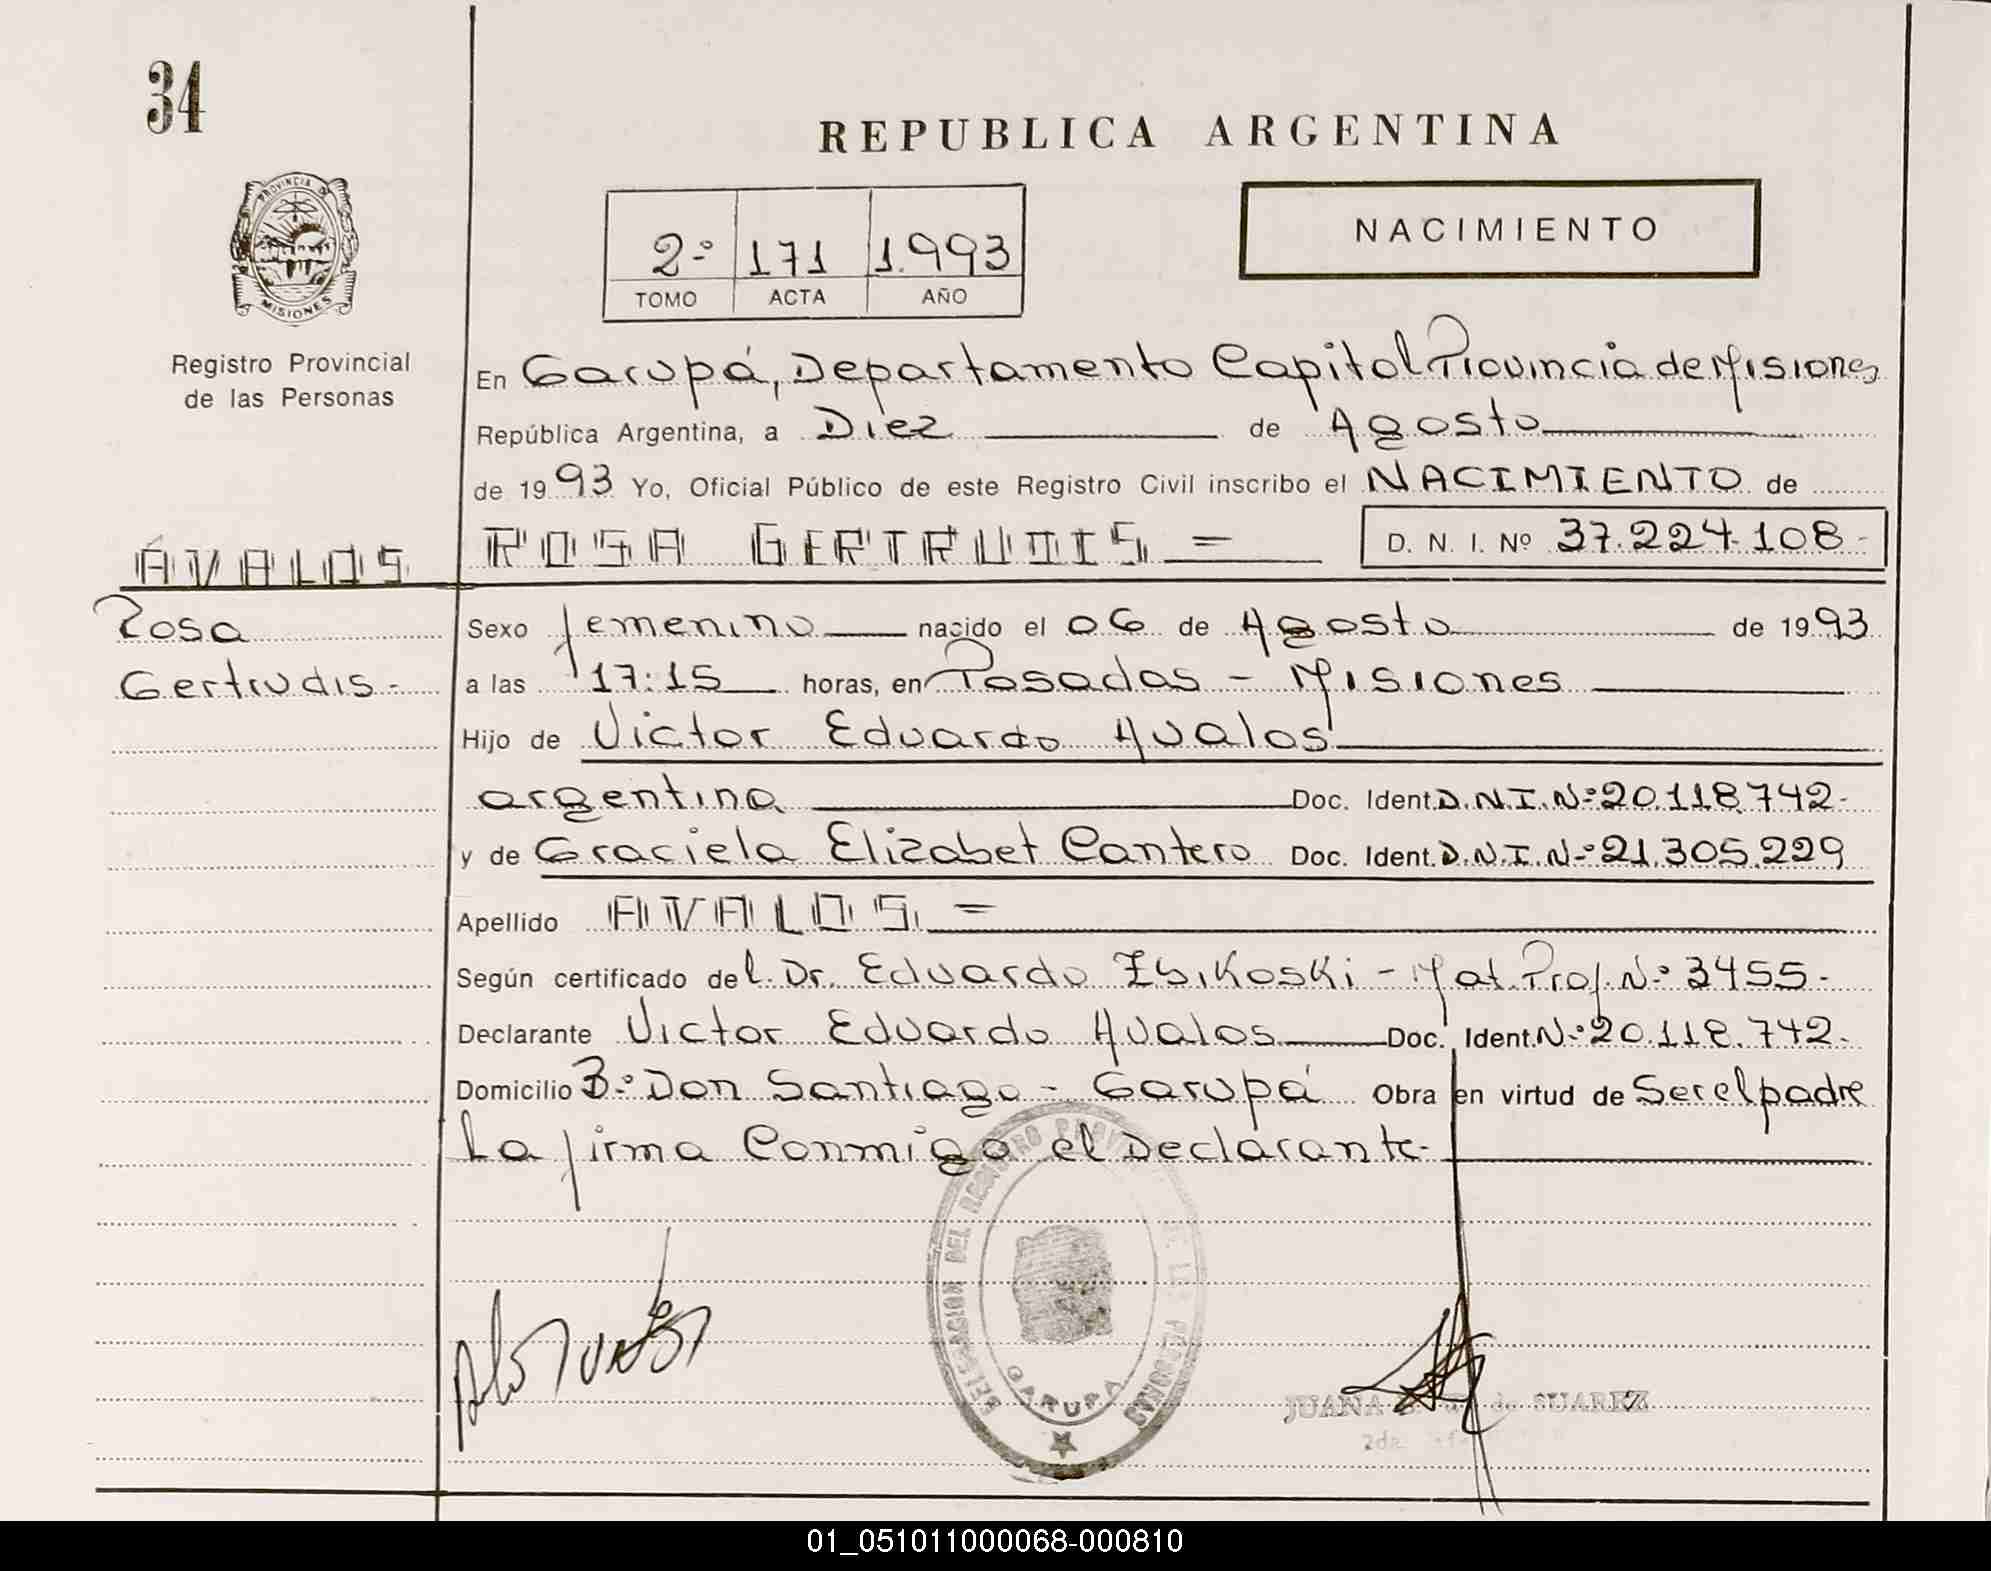 34
REPUBLICA ARGENTINA
PROVINCIA DE
MISIONES
Registro Provincial
de las Personas
2º 171 1.993
TOMO ACTA AÑO
NACIMIENTO
En Garupá, Departamento Capital Provincia de Misiones
República Argentina, a Diez de Agosto
de 1993 Yo, Oficial Público de este Registro Civil inscribo el NACIMIENTO de
ÁVALOS ROSA GERTRUDIS = D. N. I. Nº 37.224.108-
Rosa
Gertrudis-
Sexo femenino nacido el 06 de Agosto de 1993
a las 17:15 horas, en Posadas - Misiones
Hijo de Victor Eduardo Avalos
argentina Doc. Ident. D.N.I. Nº 20.118.742-
y de Graciela Elizabet Cantero Doc. Ident. D.N.I. Nº 21.305.229
Apellido AVALOS =
Según certificado del Dr. Eduardo Zbikoski - Mat. Prof. Nº 3455-
Declarante Victor Eduardo Avalos Doc. Ident. Nº 20.118.742-
Domicilio Bº Don Santiago - Garupá Obra en virtud de Ser el padre
La firma Conmigo el Declarante-
DELEGACION DEL REGISTRO PROVINCIAL DE LAS PERSONAS
GARUPA
JUANA de SUAREZ
01_051011000068-000810